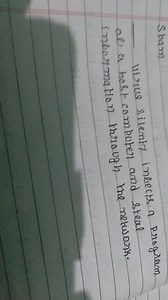 Spam
— Virus silently infects a program
or a host computer and steal
information through the network.